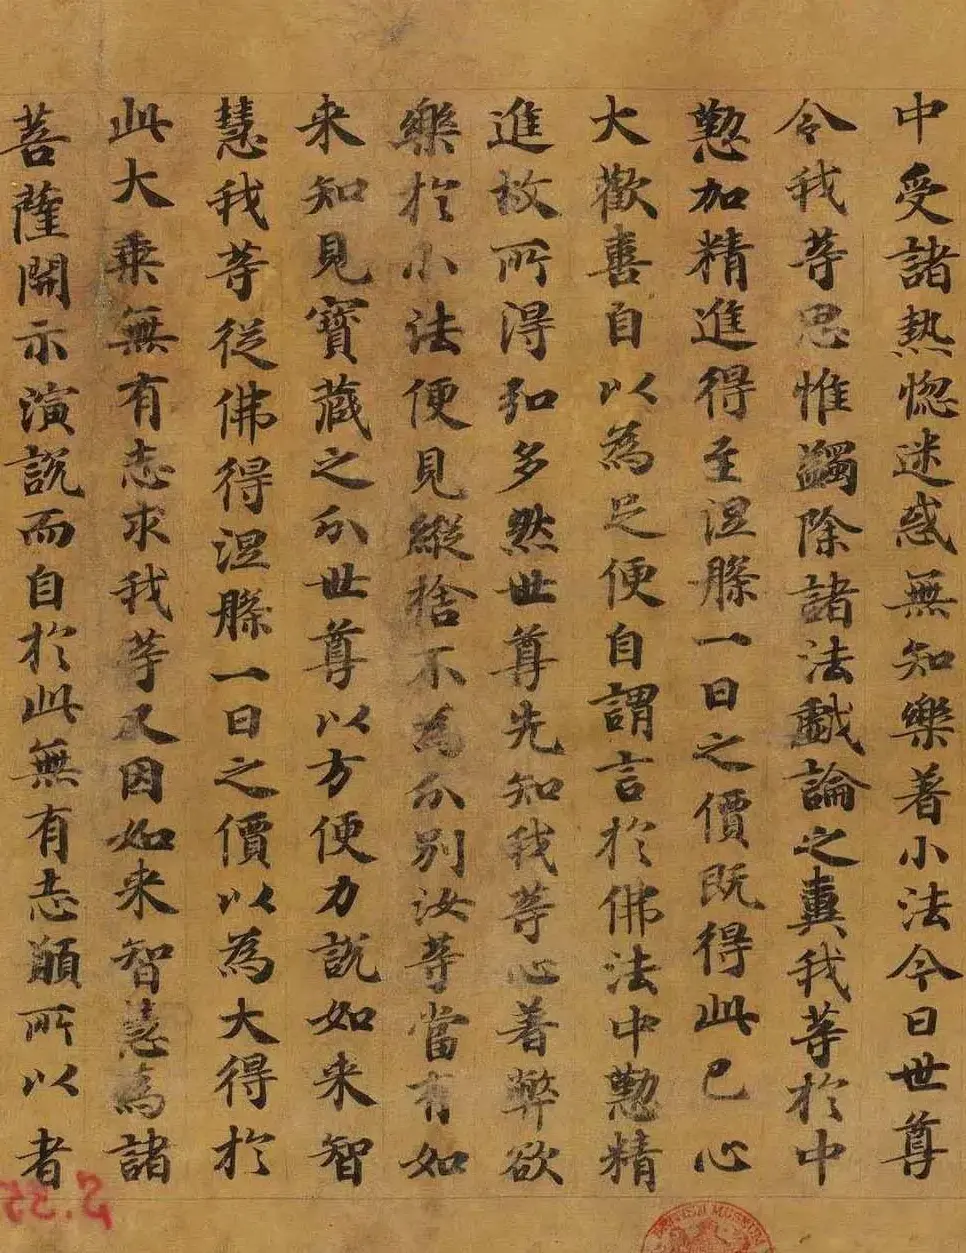 中受諸熱惱迷惑無知樂著小法今日世尊
令我等思惟蠲除諸法戲論之糞我等於中
懃加精進得至涅槃一日之價既得此已心
大歡喜自以為足便自謂言於佛法中懃精
進故所得弘多然世尊先知我等心著弊欲
樂於小法便見縱捨不為分別汝等當有如
来知見寶藏之分世尊以方便力說如来智
慧我等從佛得涅槃一日之價以為大得於
此大乘無有志求我等又因如来智慧為諸
菩薩開示演說而自於此無有志願所以者
BRITISH MUSEUM